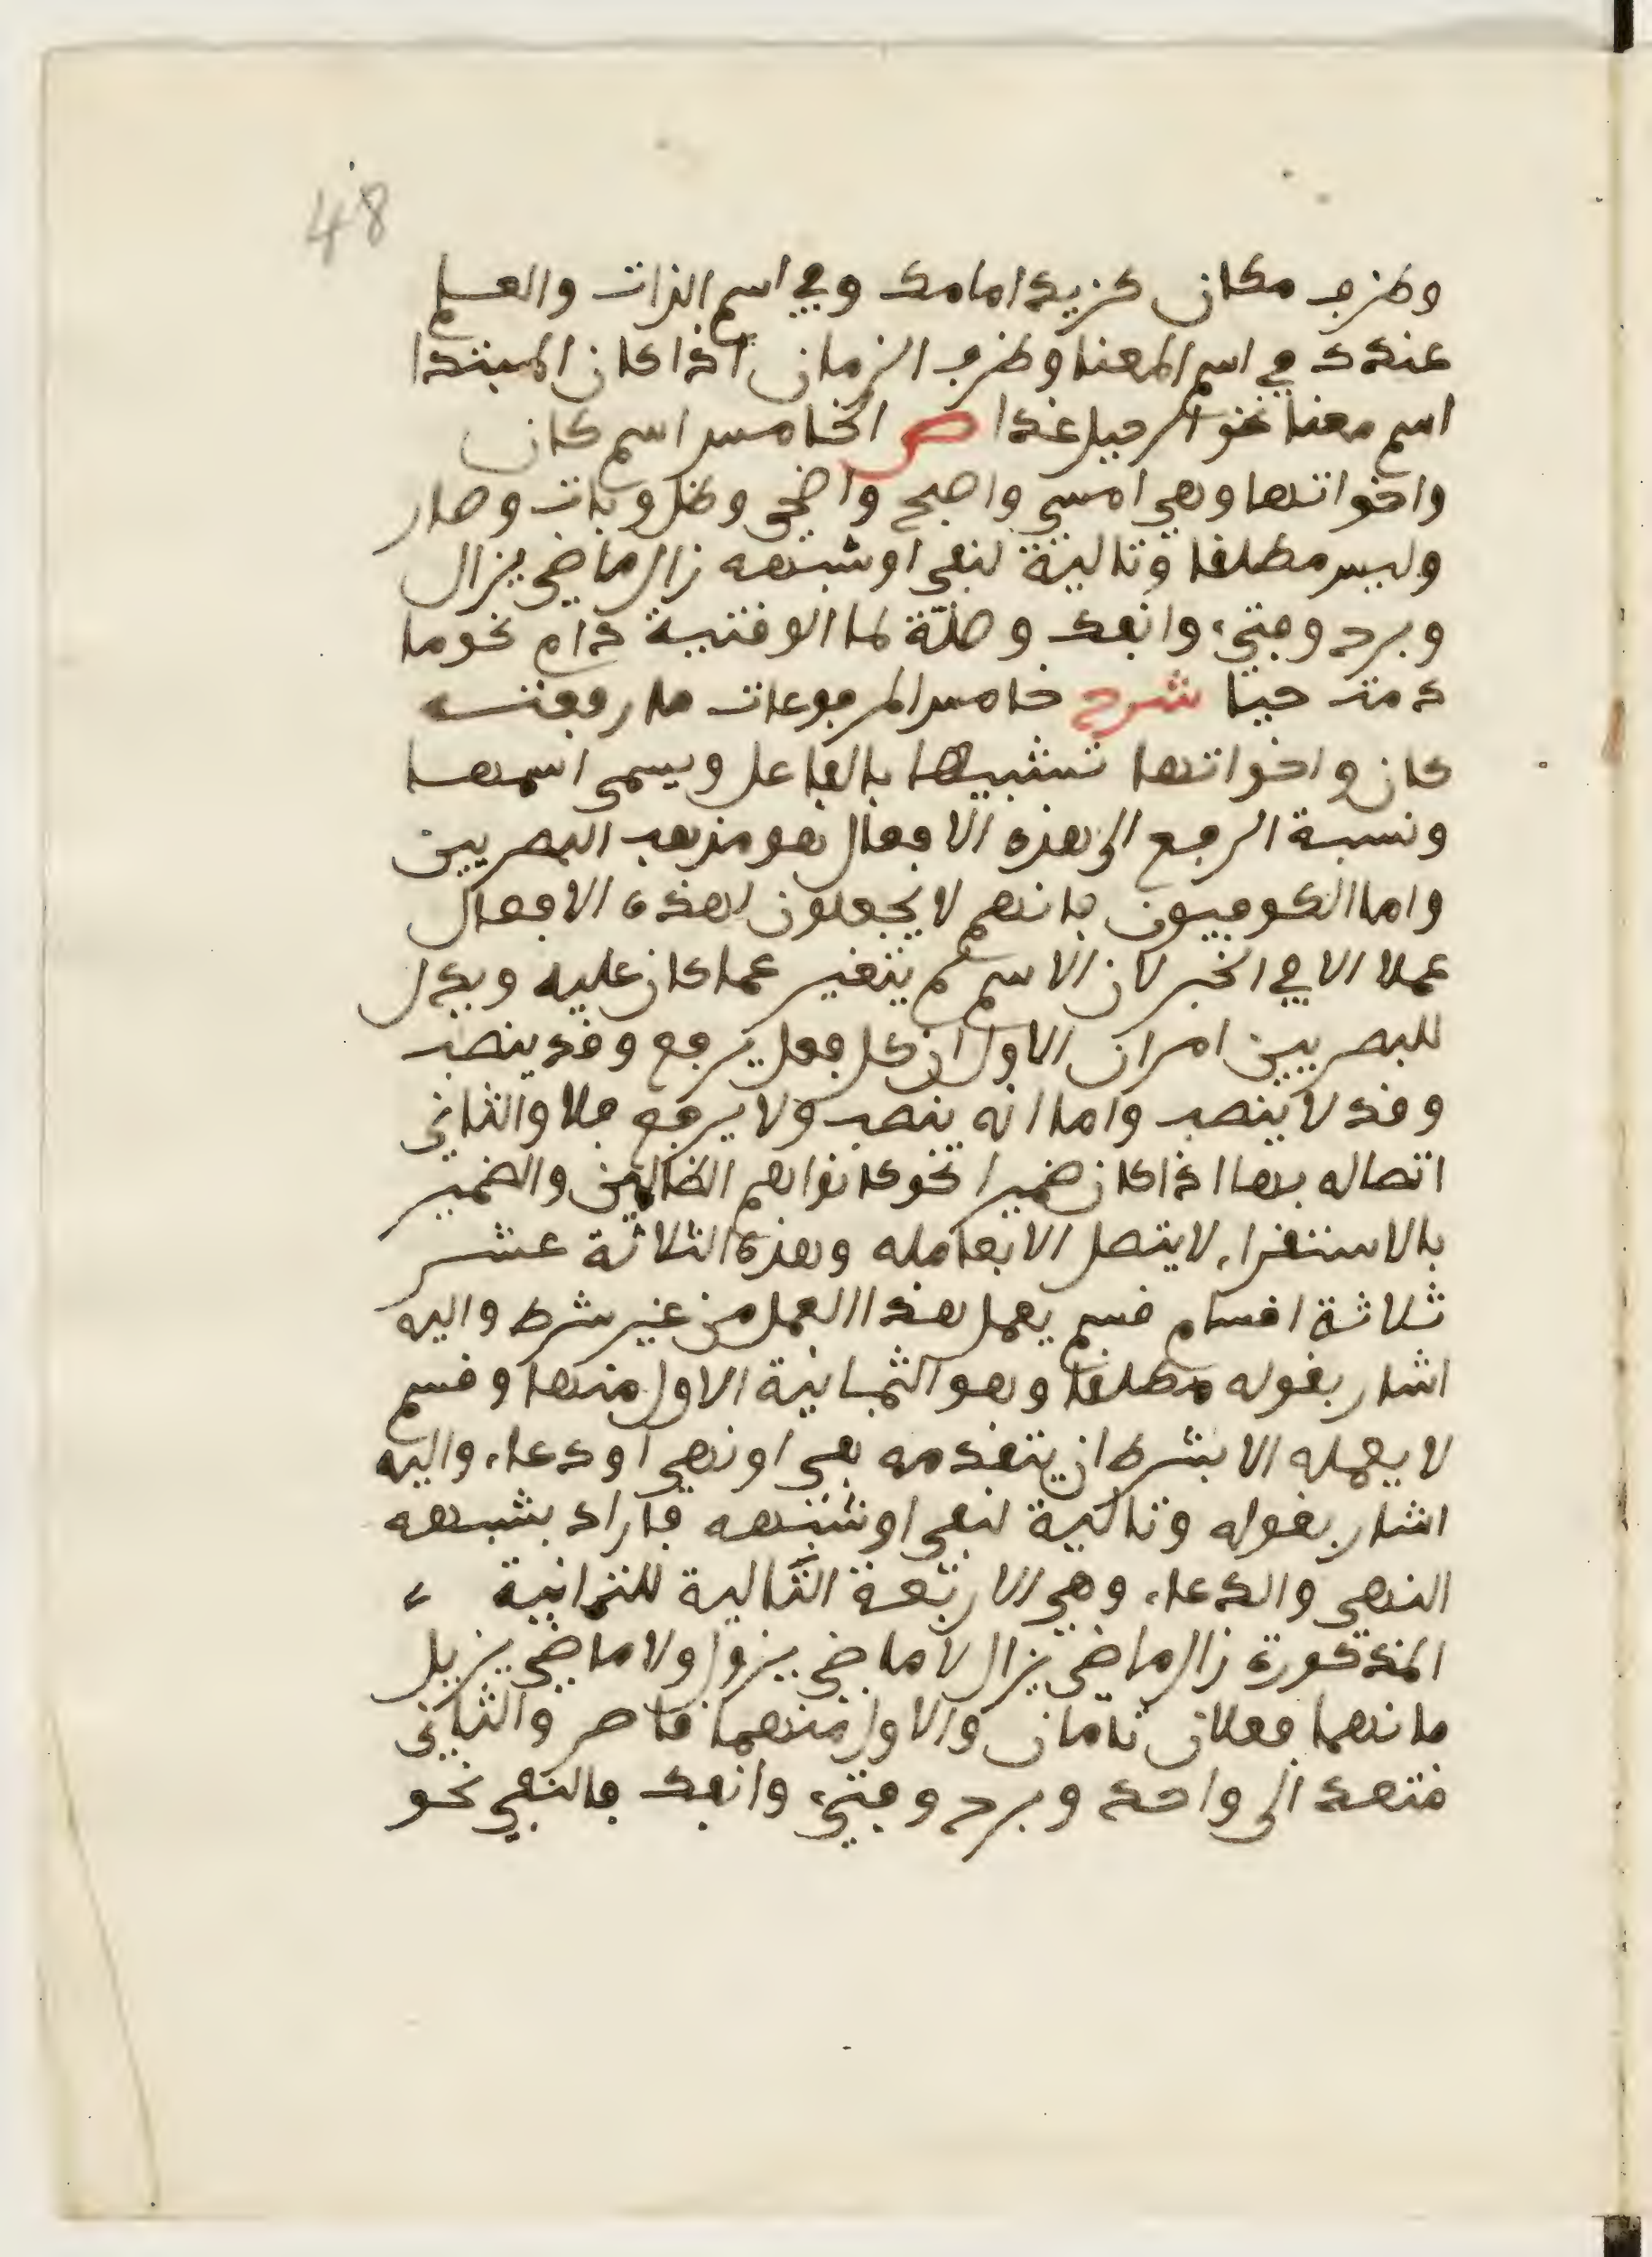 48
وظرف مكان كزيد امامك وفي اسم الذات والعلم
عندك في اسم المعنا وظرف الزمان اذا كان المبتدا
اسم معنا نحو الرحيل غدا ص الخامس اسم كان
واخواتها وهي امسى واصبح واضحى وظل وبات وصار
وليس مطلقا وتالية لنفي او شبهه زال ماضي يزال
وبرح وفتئ وانفك وصلة لما الوقتية دام نحو ما
دمت حيا شرح خامس المرفوعات ما رفعته
كان واخواتها تشبيها بالفاعل ويسمى اسمها
ونسبة الرفع الى هذه الافعال هو مذهب البصريين
واما الكوفيون فانهم لا يجعلون لهذه الافعال
عملا الا في الخبر لان الاسم لم يتغير عما كان عليه ويدل
للبصريين امران الاول ان كل فعل يرفع وقد ينصب
وقد لا ينصب واما انه ينصب ولا يرفع فلا والثاني
اتصاله بها اذا كان ضميرا نحو كانوا هم الظالمين والضمير
بالاستقراء لا يتصل الا بعامله وهذه الثلاثة عشر
ثلاثة اقسام قسم يعمل هذا العمل من غير شرط واليه
اشار بقوله مطلقا وهو الثمانية الاول منها وقسم
لا يعمله الا بشرط ان يتقدمه نفي او نهي او دعاء واليه
اشار بقوله وتالية لنفي او شبهه فاراد بشبهه
النهي والدعاء وهي الاربعة التالية للثمانية
المذكورة زال ماضي يزال لا ماضي يزول ولا ماضي يزيل
فانهما فعلان تامان والاول منهما قاصر والثاني
متعد الى واحد وبرح وفتئ وانفك فالنفي نحو